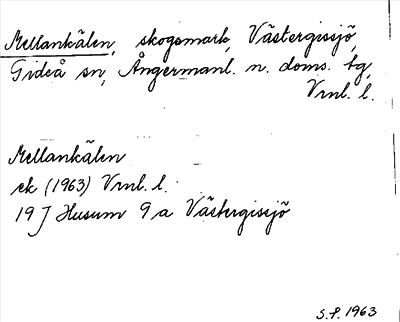 Mellankälen, skogsmark, Västergissjö,
Gideå sn, Ångermanl. n. doms. tg,
Vrnl. l.
Mellankälen
ek (1963) Vrnl. l.
19 J Husum 9 a Västergissjö
S.P. 1963